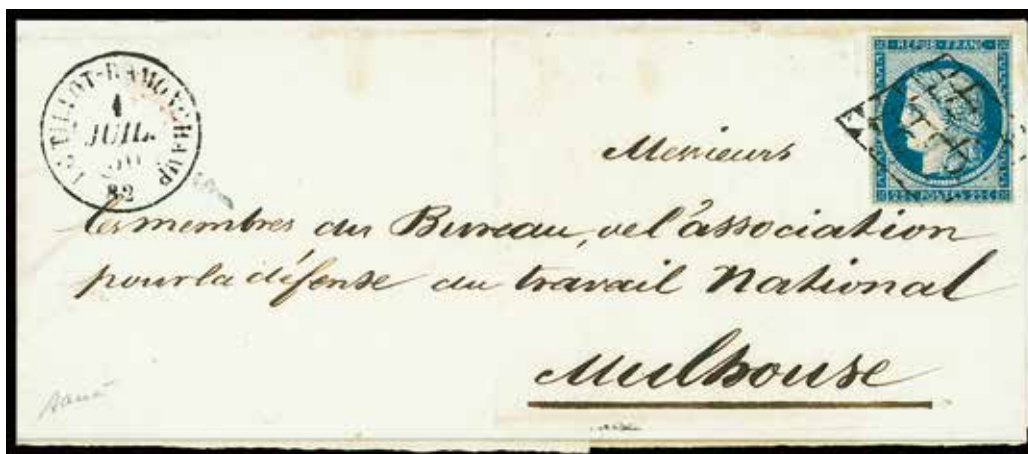 LE THILLOT-RAMONCHAMP
1
JUIL.
82
REPUB. FRANC.
25 C POSTES 25 C
Messieurs
les membres du Bureau, de l'association
pour la défense du travail National
Mulhouse